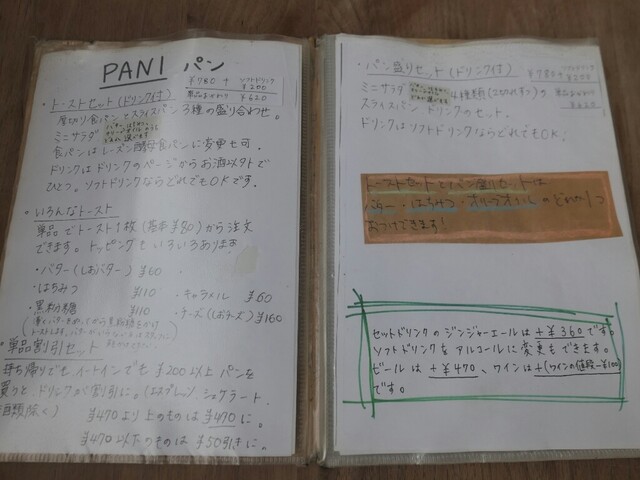 PANI パン
¥780+ ソフトドリンク ¥200
単品おかわり ¥620
・トーストセット(ドリンク付)
厚切り食パンとスライスパン3種の盛り合わせ。
ミニサラダ
食パンはレーズン酵母食パンに変更も可。
ドリンクはドリンクのページからお酒以外で
ひとつ。ソフトドリンクならどれでもOKです。
・いろんなトースト
単品でトースト1枚(基本¥80)から注文
できます。トッピングもいろいろあります!
・バター(しおバター) ¥60
・はちみつ ¥110
・キャラメル ¥60
・黒粉糖 ¥110
・チーズ(しおチーズ) ¥160
・単品割引セット
持ち帰りでもイートインでも¥200以上パンを
買うと、ドリンクが割引に。(エスプレッソ、シェケラート、
酒類除く)
¥470より上のものは¥470に。
¥470以下のものは¥50引きに。
・パン盛りセット(ドリンク付)
¥780+ ソフトドリンク ¥200
単品おかわり ¥620
ミニサラダ 4種類(2切れずつ)の
スライスパン ドリンクのセット。
ドリンクはソフトドリンクならどれでもOK!
トーストセットとパン盛りセットは
バター・はちみつ・オリーブオイルのどれか1つ
おつけできます!
セットドリンクのジンジャーエールは+¥360です。
ソフトドリンクをアルコールに変更もできます。
ビールは+¥470、ワインは+(ワインの値段-¥100)
です。